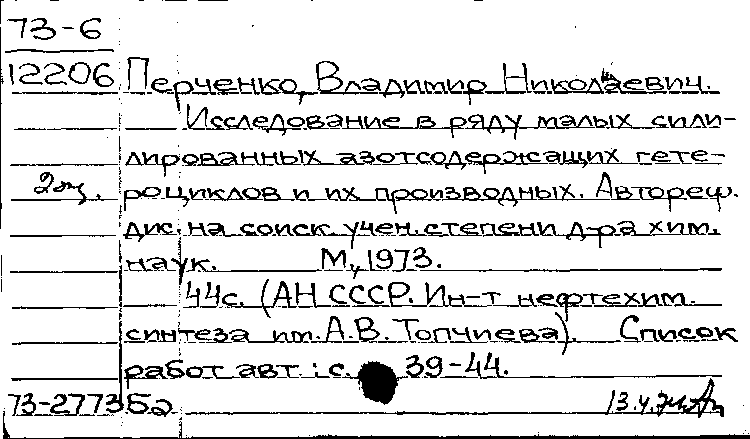 73-6
12206 Перченко, Владимир Николаевич.
Исследование в ряду малых сили-
лированных азотсодержащих гете-
2 экз. роциклов и их производных. Автореф.
дис. на соиск. учен. степени д-ра хим.
наук. М., 1973.
44с. (АН СССР. Ин-т нефтехим.
синтеза им. А.В. Топчиева). Список
работ авт.: с. 39-44.
73-27735а